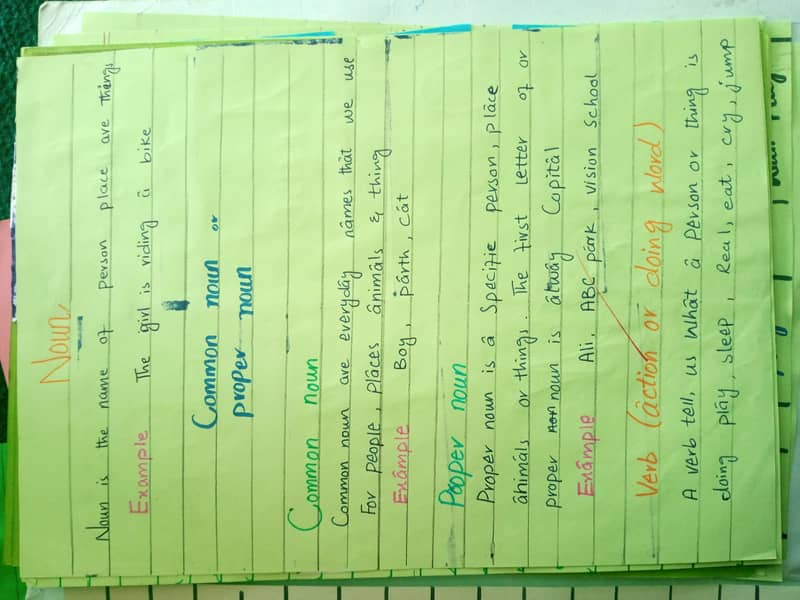 Noun
Noun is the name of person place are things
Example The girl is riding a bike
Common noun or
proper noun
Common noun
Common noun are everyday names that we use
For people, places animals & thing
Example Boy, parth, cat
Pooper noun
Proper noun is a Specific person, place
animals or things. The first letter of or
proper noun is alway Copital
Example Ali, ABC park, vision School
Verb (action or doing word)
A verb tell, us what a person or thing is
doing play, sleep, Real, eat, cry, jump